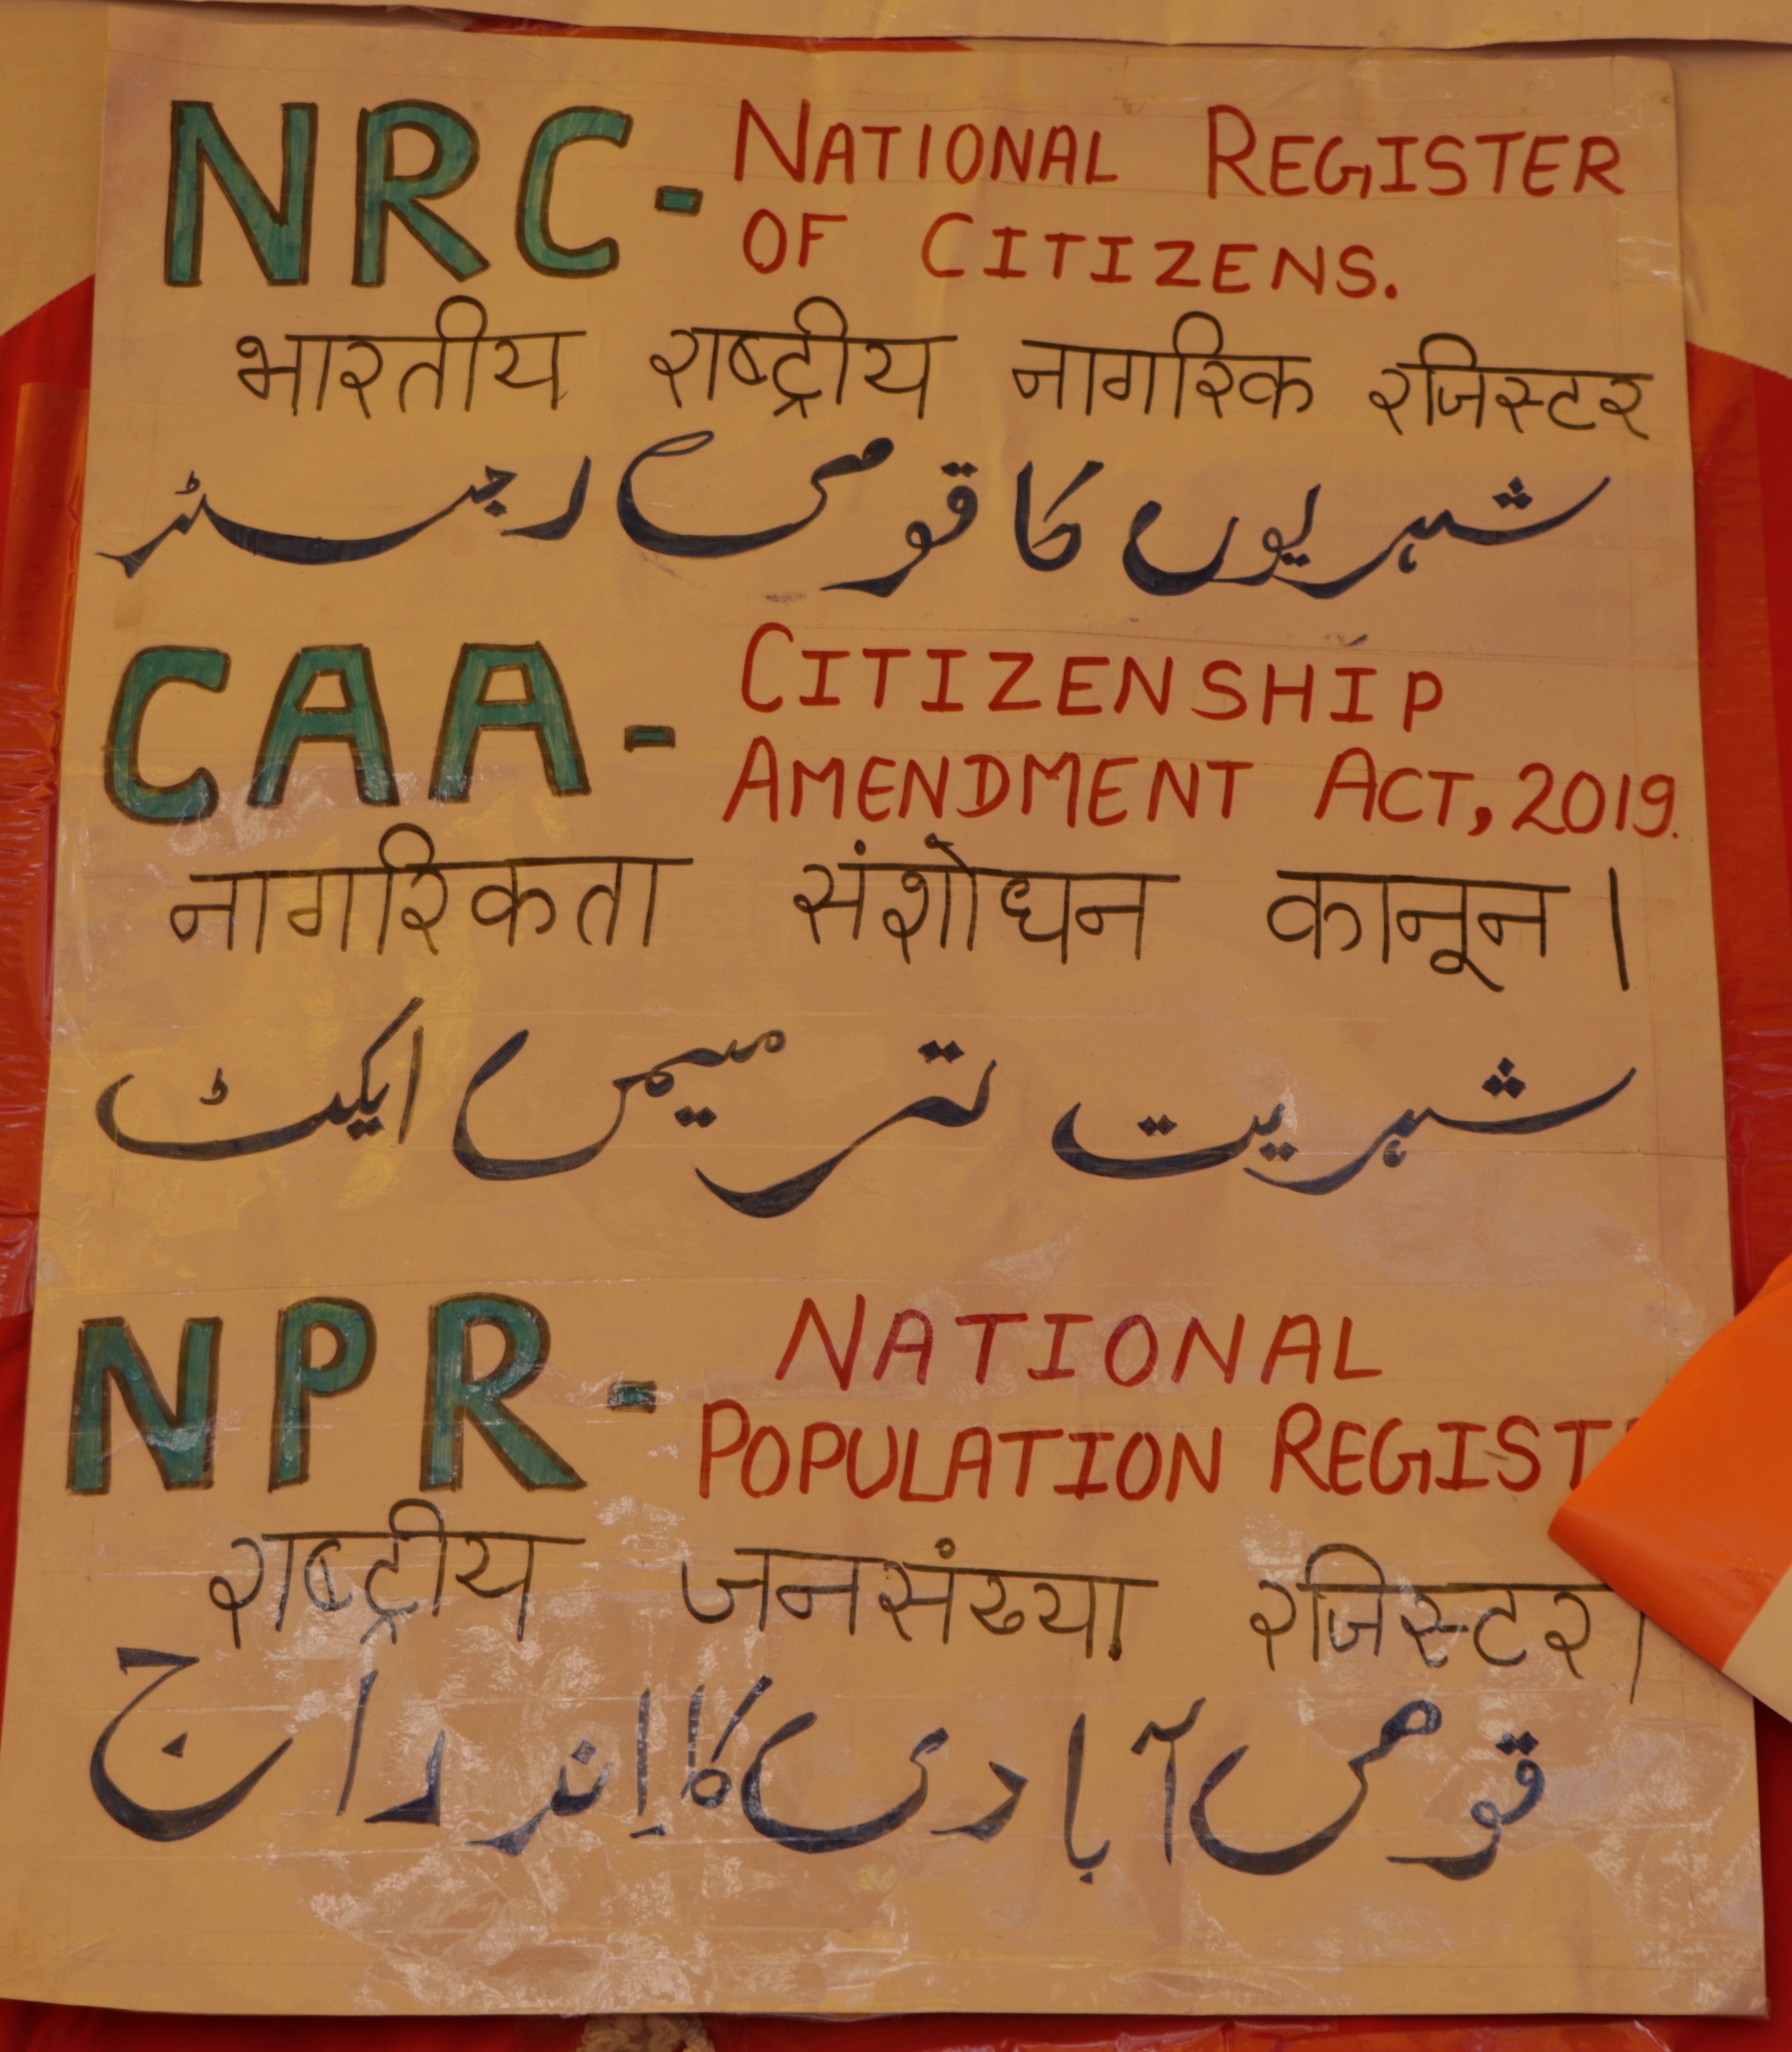 NRC- NATIONAL REGISTER
OF CITIZENS.
भारतीय राष्ट्रीय नागरिक रजिस्टर
شہریوں کا قومی رجسٹر
CAA- CITIZENSHIP
AMENDMENT ACT, 2019.
नागरिकता संशोधन कानून।
شہریت ترمیمی ایکٹ
NPR- NATIONAL
POPULATION REGIST
राष्ट्रीय जनसंख्या रजिस्टर।
قومی آبادی کا اِندراج